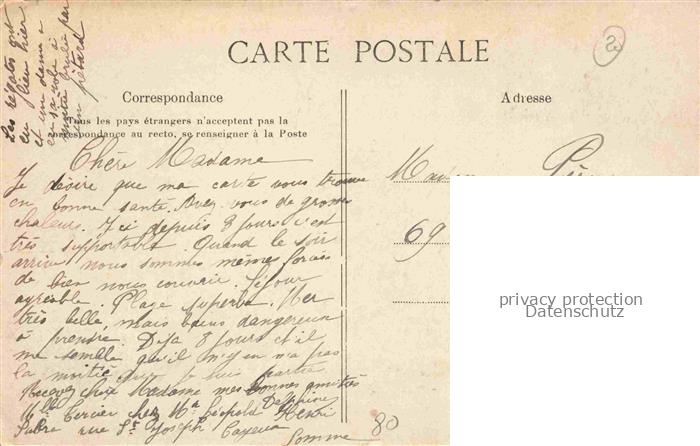 Les régates ont
eu lieu hier
et un dame a
eu sa robe à
moitié brulée par
un pétard
CARTE POSTALE
Correspondance
Tous les pays étrangers n'acceptent pas la
correspondance au recto, se renseigner à la Poste
Adresse
Chère Madame
Je désire que ma carte vous trouve
en bonne santé. Avez vous de grosses
chaleurs. Ici depuis 8 jours c'est
très supportable. Quand le soir
arrive nous sommes mêmes forcés
de bien nous couvrir. Séjour
agréable. Plage superbe. Mer
très belle, mais bains dangereux
à prendre. Déja 8 jours et il
me semble qu'il n'y en a pas
la moitié que je suis partie
Recevez chère Madame mes bonnes amitiés
Mlle Cercier chez Mr Léopold Delphine
rue St Joseph Cayeux
Somme
69
80
privacy protection
Datenschutz